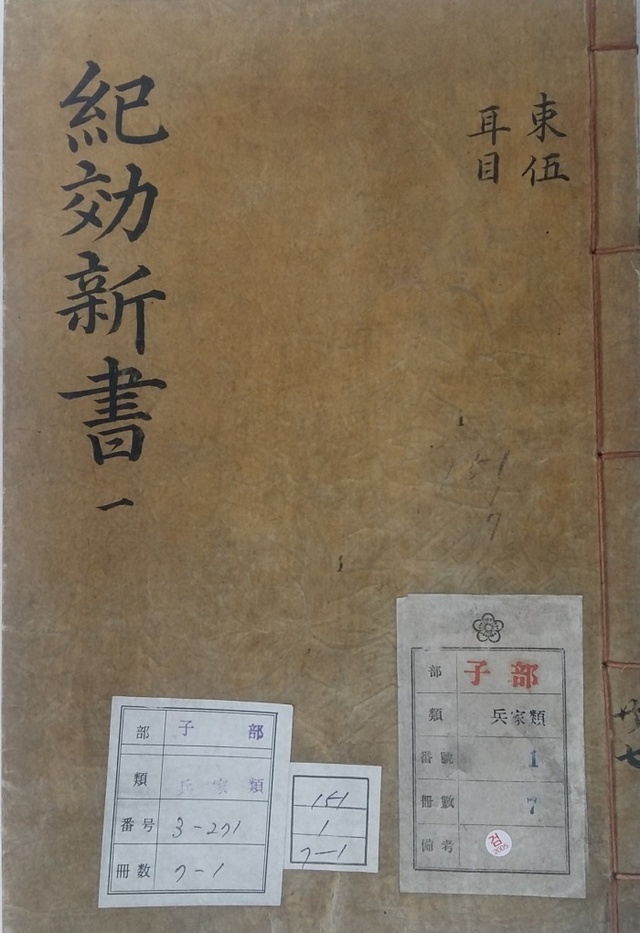 紀効新書 一
束伍
耳目
151
1
7
共
七
部 子部
類 兵家類
番號 1
冊數 7
備考
검
2005
部 子部
類 兵家類
番号 3-271
冊数 7-1
151
1
7-1